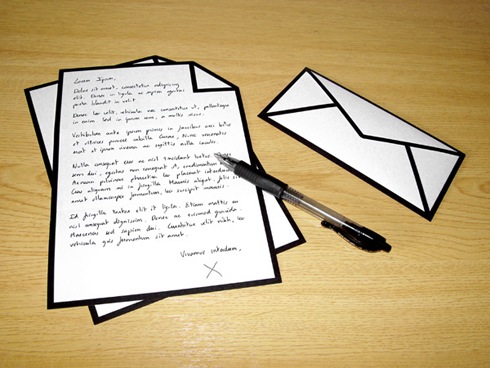 Lorem Ipsum,
Dolor sit amet, consectetur adipiscing
elit. Donec in ligula ac sapien egestas
porta blandit in velit.
Donec leo velit, vehicula nec consectetur et, pellentesque
in enim. Sed in ipsum sem, a mollis nunc.
Vestibulum ante ipsum primis in faucibus orci luctus
et ultrices posuere cubilia Curae; Nunc venenatis
erat et ipsum viverra ac sagittis nulla iaculis.
Nulla consequat eros ac nisl tincidunt luctus
sem dui, egestas non consequat ut, condimentum
Aenean pulvinar pharetra leo placerat interdum.
Cras aliquam mi in fringilla Mauris aliquet, felis
amet ullamcorper fermentum, leo suscipit
Id fringilla tortor elit et ligula. Etiam mattis
nisl consequat dignissim. Donec ac euismod gravida.
Maecenas sed sapien dui. Curabitur elit nibh, leo
vehicula quis fermentum sit amet.
Vivamus interdum,
X